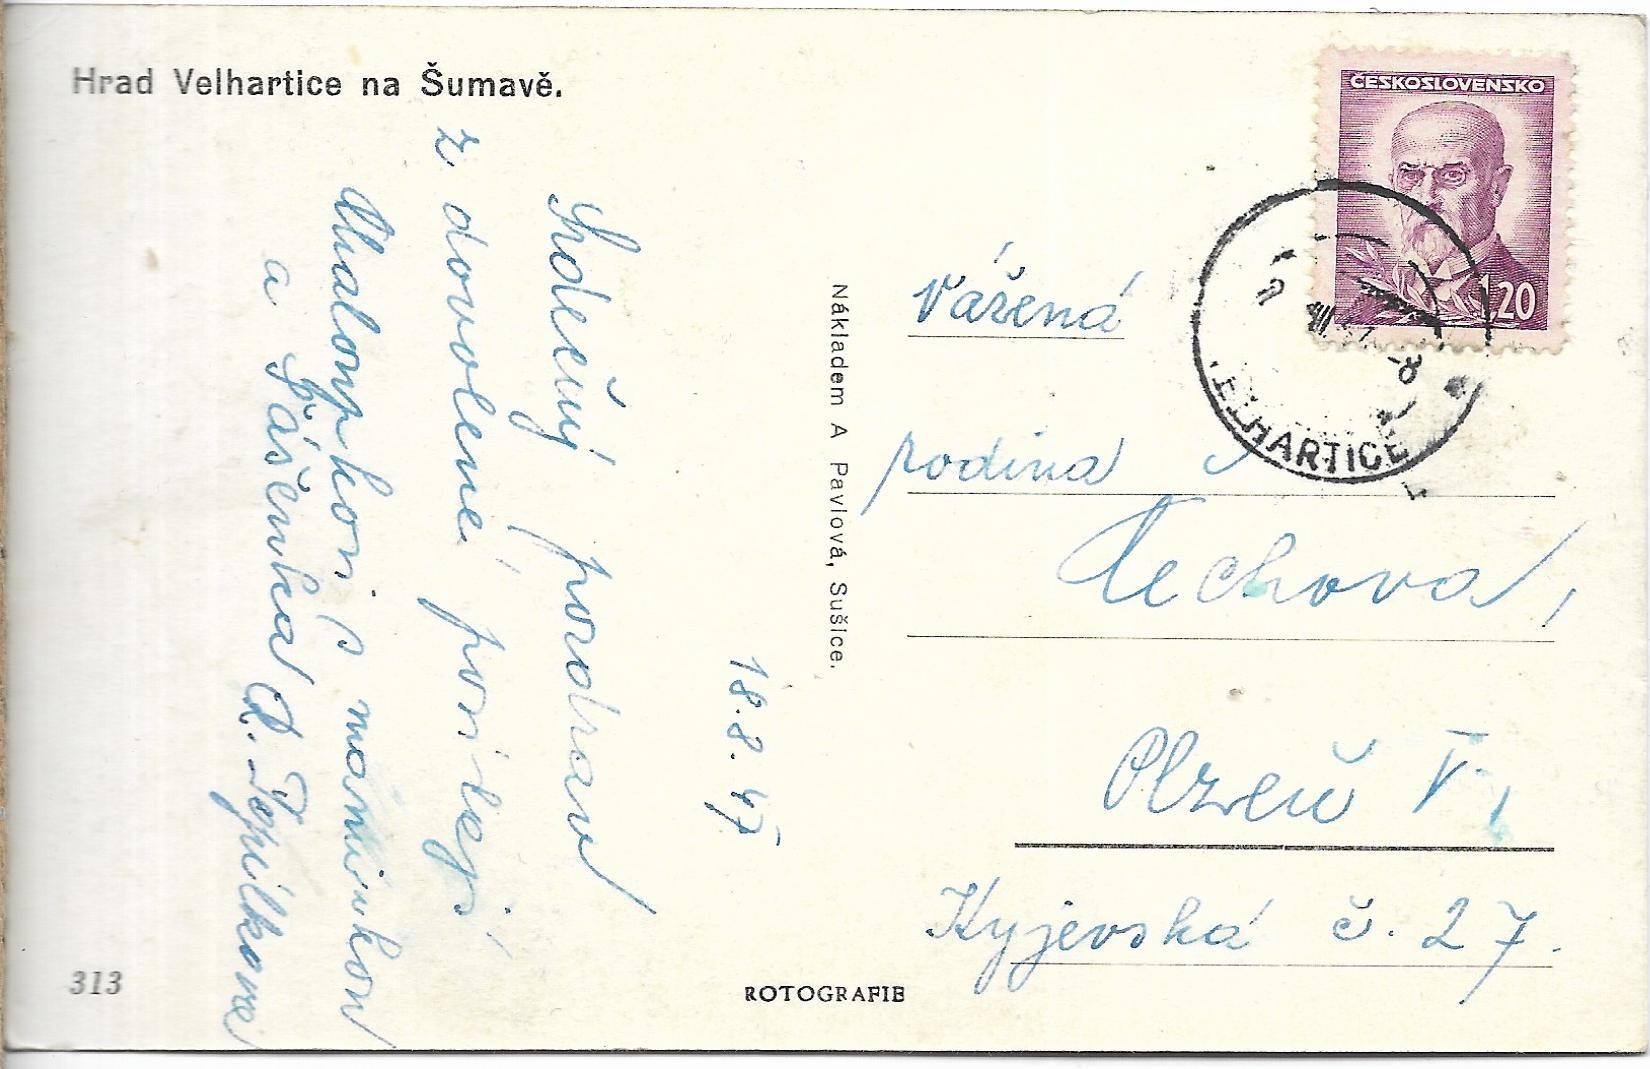 Hrad Velhartice na Šumavě.
18.8.47
Srdečný pozdrav
z dovolené posílají
s maminkou
a Páťenka
313
Nákladem A Pavlová, Sušice.
ROTOGRAFIE
ČESKOSLOVENSKO
1,20
ELHARTICE
Vážená
rodina
Čechova,
Plzeň V,
Kyjevská č. 27.